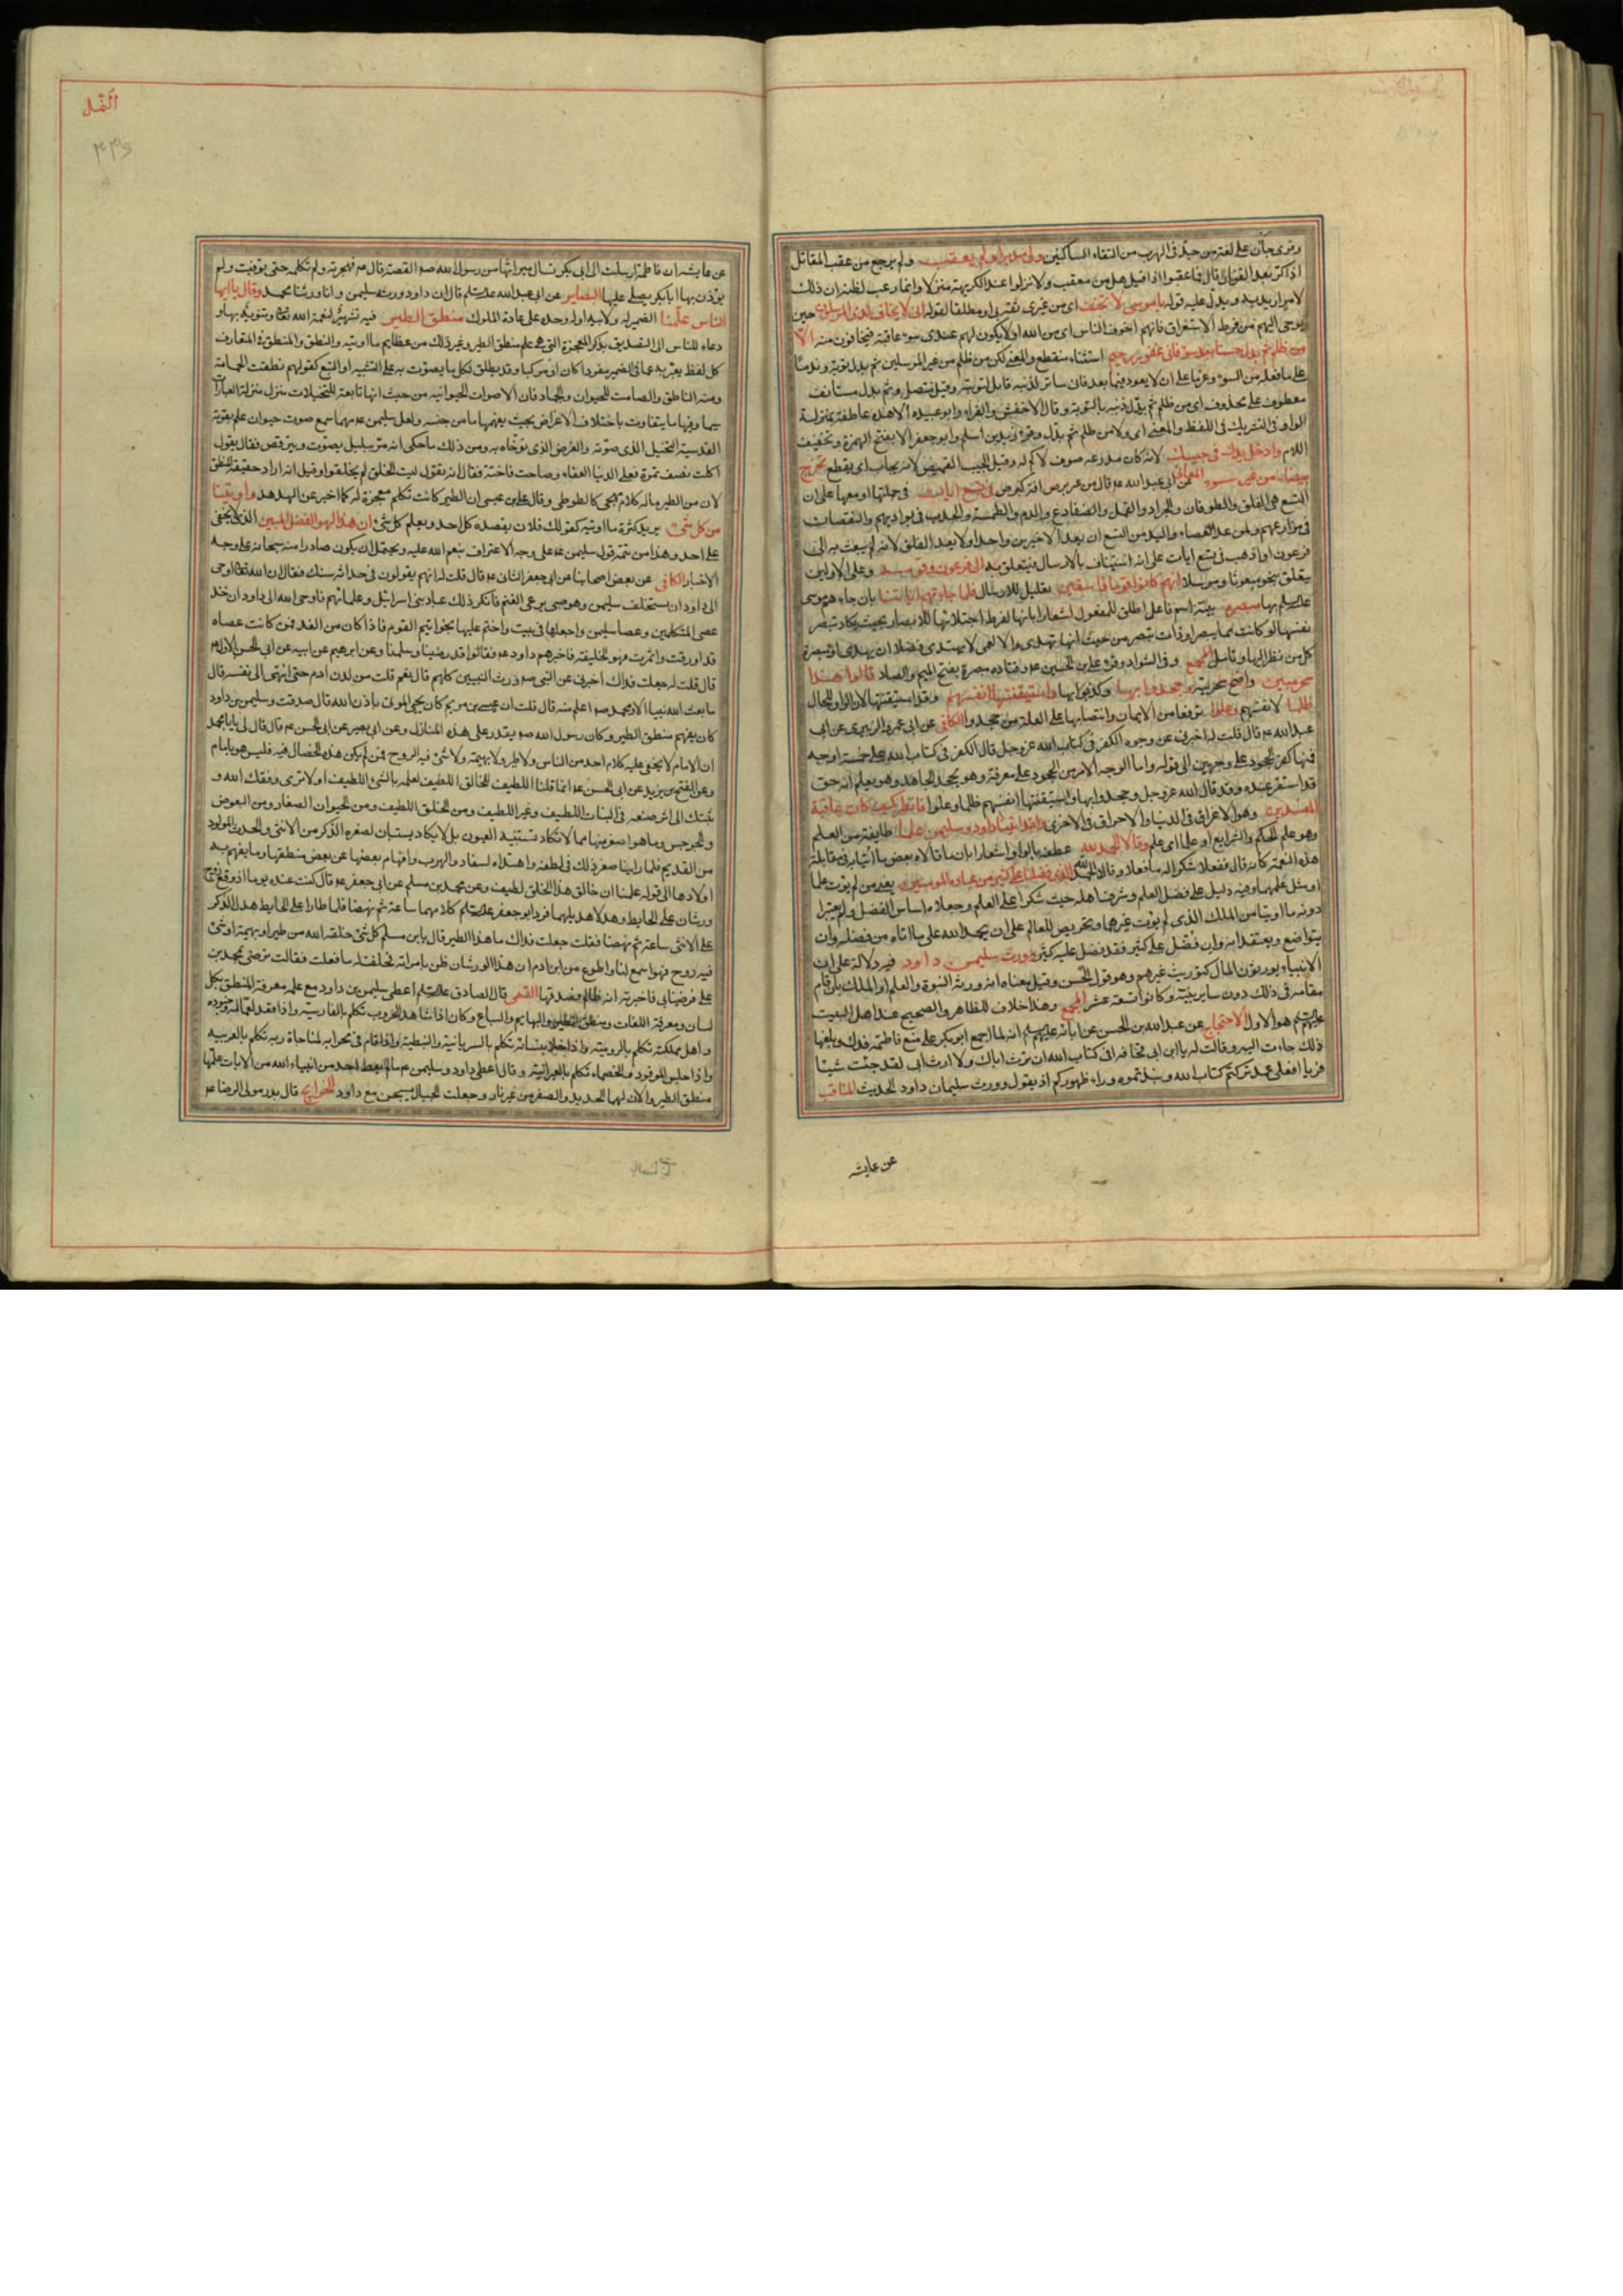 وقرئ جأن على لغة من جد في الهرب من التقاء الساكنين ولى مدبرا ولم يعقب ولم يرجع من عقب المقاتل
اذا كر بعد الفرار قال فما عقبوا اذ قيل هل من معقب ولا نزلوا عند الكريهة منزلا وانما رعب لظنه ان ذلك
لامر اريد به ويدل عليه قوله يا موسى لا تخف اى من غيرى ثقة بى او مطلقا لقوله انى لا يخاف لدى المرسلون حين
يوحى اليهم من فرط الاستغراق فانهم اخوف الناس اى من الله او لا يكون لهم عندى سوء عاقبة فيخافون منه الا
من ظلم ثم بدل حسنا بعد سوء فانى غفور رحيم استثناء منقطع والمعنى لكن من ظلم من غير المرسلين ثم بدل توبة وندما
على ما فعله من السوء وعزما على ان لا يعود فيما بعد فانى ساتر لذنبه قابل لتوبته وقيل متصل وثم بدل مستانف
معطوف على محذوف اى من ظلم ثم بدل ذنبه بالتوبة وقال الاخفش والفراء وابو عبيده الا هذه عاطفة بمنزلة
الواو فى التشريك فى اللفظ والمعنى اى ولا من ظلم ثم بدل وقرء زيد بن اسلم وابو جعفر الا بفتح الهمزة وتخفيف
اللام وادخل يدك فى جيبك لانه كان مدرعه صوف لا كم له وقيل الجيب القميص لانه يجاب اى يقطع تخرج
بيضاء من غير سوء المعانى عن ابى عبد الله ع قال من غير برص افة كبرص فى تسع ايات فى جملتها او معها على ان
التسع هى الفلق والطوفان والجراد والقمل والضفادع والدم والطمسة والجدب فى بواديهم والنقصان
فى مزارعهم ولمن عد العصاء واليد من التسع ان يعد الاخيرين واحدا ولا يعد الفلق لانه لم يبعث به الى
فرعون او اذهب فى تسع ايات على انه استيناف بالارسال فيتعلق به الى فرعون وقومه وعلى الاولين
يتعلق بنحو مبعوثا ومرسلا انهم كانوا قوما فاسقين تعليل للارسال فلما جاءتهم اياتنا بان جاءهم موسى
عليه السلم بها مبصرة بينة اسم فاعل اطلق للمفعول اشعارا بانها لفرط اجتلائها للابصار بحيث يكاد تبصر
نفسها لو كانت مما يبصر او ذات تبصر من حيث انها تهدى والا لعمى لا يهتدى فضلا ان يهدى او مبصرة
كل من نظر اليها وتامل المجمع وفى الشواذ وقرء على بن الحسين ع وقتاده مبصرة بفتح الميم والصاد قالوا هذا
سحر مبين واضح سحريته وجحدوا بها وكذبوا بها واستيقنتها انفسهم وقد استيقنتها لان الواو للحال
ظلما لانفسهم وعلوا ترفعا من الايمان وانتصابها على العلة من جحدوا الكافى عن ابى عمرو الزبيرى عن ابى
عبد الله ع قال قلت له اخبرنى عن وجوه الكفر فى كتاب الله عز وجل قال الكفر فى كتاب الله على خمسة اوجه
فمنها كفر الجحود على وجهين الى قوله واما الوجه الاخر من الجحود على معرفة وهو يجحد الجاحد وهو يعلم انه حق
قد استقر عنده وقد قال الله عز وجل وجحدوا بها واستيقنتها انفسهم ظلما وعلوا فانظر كيف كان عاقبة
المفسدين وهو الاغراق فى الدنيا والاحراق فى الاخرى ولقد اتينا داود وسليمن علما طايفة من العلم
وهو علم الحكم والشرايع او علما اى علم وقالا الحمد لله عطفه بالواو اشعارا بان ما قالاه بعض ما اتيا به فى مقابلة
هذه النعمة كانه قال ففعلا شكرا له ما فعلا وقالا الحمد لله الذى فضلنا على كثير من عباده المومنين يعنى من لم يوت علما
او مثل علمهما وفيه دليل على فضل العلم وشرف اهله حيث شكرا على العلم وجعلاه اساس الفضل ولم يعتبرا
دونه ما اوتيا من الملك الذى لم يوت غيرهما وتحريص للعالم على ان يحمد الله على ما اتاه من فضله وان
يتواضع ويعتقد انه وان فضل على كثير فقد فضل عليه كثير وورث سليمن داود فيه دلالة على ان
الانبياء يورثون المال كتوريث غيرهم وهو قول الحسن وقيل معناه انه ورثه النبوة والعلم او الملك بان قام
مقامه فى ذلك دون ساير بنيه وكانوا تسعة عشر المجمع وهذا خلاف للظاهر والصحيح عند اهل البيت
عليهم السلم هو الاول الاحتجاج عن عبد الله بن الحسن عن ابائه عليهم السلم انه لما اجمع ابو بكر على منع فاطمة فدك وبلغها
ذلك جاءت اليه وقالت له يا ابن ابى قحافه افى كتاب الله ان ترث اباك ولا ارث ابى لقد جئت شيئا
فريا افعلى عمد تركتم كتاب الله ونبذتموه وراء ظهوركم اذ يقول وورث سليمان داود الحديث المناقب
عن عايشه
النمل
عن عايشه ان فاطمة ارسلت الى ابى بكر تسال ميراثها من رسول الله ص القصة قال ع فهجرته ولم تكلمه حتى توفيت ولم
يوذن بها ابا بكر يصلى عليها البصاير عن ابى عبد الله عليه السلم قال ان داود ورثه سليمن وانا ورثنا محمد وقال يا ايها
الناس علمنا الضمير له ولابيه او له وحده على عادة الملوك منطق الطير فيه تشهير لنعمة الله تعالى وتنويه بها و
دعاء للناس الى التصديق بذكر المعجزة التى هى علم منطق الطير وغير ذلك من عظايم ما اوتيه والنطق والمنطق فى المتعارف
كل لفظ يعبر به عما فى الضمير مفردا كان او مركبا وقد يطلق لكل ما يصوت به على التشبيه او التبع كقولهم نطقت الحمامة
ومنه الناطق والصامت للحيوان والجماد فان الاصوات الحيوانيه من حيث انها تابعة للتخيلات منزله منزلة العبارات
سيما وفيها ما يتفاوت باختلاف الاغراض بحيث يفهمها ما من جنسه ولعل سليمن ع مهما سمع صوت حيوان علم بقوته
القدسية التخيل الذى صوته والغرض الذى توخاه به ومن ذلك ما حكى انه مر ببلبل يصوت ويترقص فقال يقول
اكلت نصف تمرة فعلى الدنيا العفاء وصاحت فاخته فقال انه يقول ليت الخلق لم يخلقوا وقيل انه اراد حقيقة المنطق
لان من الطير ما له كلام يهجى كالطوطى وقال على بن عيسى ان الطير كانت تكلم معجزة له كما اخبر عن الهدهد واوتينا
من كل شئ يريد كثرة ما اوتيه كقولك فلان يقصده كل احد ويعلم كل شئ ان هذا لهو الفضل المبين الذى لا يخفى
على احد وهذا من تتمة قول سليمن ع على وجه الاعتراف بنعم الله عليه ويحتمل ان يكون صادرا منه سبحانه على وجه
الاخبار الكافى عن بعض اصحابنا عن ابى جعفر الثانى ع قال قلت له انهم يقولون فى حداثة سنك فقال ان الله تعالى اوحى
الى داود ان يستخلف سليمن وهو صبى يرعى الغنم فانكر ذلك عباد بنى اسرائيل وعلمائهم فاوحى الله الى داود ان خذ
عصى المتكلمين وعصا سليمن واجعلها فى بيت واختم عليها بخواتيم القوم فاذا كان من الغد فمن كانت عصاه
قد اورقت واثمرت فهو الخليفة فاخبرهم داود ع فقالوا قد رضينا وسلمنا وعن ابرهيم عن ابيه عن ابى الحسن الاول ع
قال قلت له جعلت فداك اخبرنى عن النبى ص ورث النبيين كلهم قال نعم قلت من لدن ادم حتى انتهى الى نفسه قال
ما بعث الله نبيا الا ومحمد ص اعلم منه قال قلت ان عيسى بن مريم كان يحيى الموتى باذن الله قال صدقت وسليمن بن داود
كان يفهم منطق الطير وكان رسول الله ص يقدر على هذه المنازل وعن ابى بصير عن ابى الحسن ع قال قال لى يا ابا محمد
ان الامام لا يخفى عليه كلام احد من الناس ولا طير ولا بهيمة ولا شئ فيه الروح فمن لم يكن هذه الخصال فيه فليس هو بامام
وعن الفتح بن يزيد عن ابى الحسن ع انما قلنا اللطيف للخالق اللطيف لعلمه بالشئ اللطيف او لا ترى وفقك الله و
ثبتك الى اثر صنعه فى النبات اللطيف وغير اللطيف ومن الخلق اللطيف ومن الحيوان الصغار ومن البعوض
والجرجس وما هو اصغر منها مما لا تكاد تستبينه العيون بل لا يكاد يستبان لصغره الذكر من الانثى والحدث المولود
من القديم فلما راينا صغر ذلك فى لطفه واهتداه لسفاد والهرب وافهام بعضها عن بعض منطقها وما يفهم به
اولادها الى قوله علمنا ان خالق هذا الخلق لطيف وعن محمد بن مسلم عن ابى جعفر ع قال كنت عنده يوما اذ وقع زوج
ورشان على الحايط وهدلا هديلهما فرد ابو جعفر عليه السلم كلامهما ساعة ثم نهضا فلما طارا على الحايط هدل الذكر
على الانثى ساعة ثم نهضا فقلت جعلت فداك ما هذا الطير قال يا بن مسلم كل شئ خلقه الله من طير او بهيمة او شئ
فيه روح فهو اسمع لنا واطوع من ابن ادم ان هذا الورشان ظن بامراته فحلفت له ما فعلت فقالت ترضى بمحمد بن
على فرضيا بى فاخبرته انه ظالم فصدقها القمى قال الصادق عليه السلم اعطى سليمن بن داود مع علمه معرفة المنطق بكل
لسان ومعرفة اللغات ومنطق الطير والبهايم والسباع وكان اذا شاهد الحروب تكلم بالفارسية واذا قعد لعماله وجنوده
واهل مملكته تكلم بالروميه واذا خلا بنسائه تكلم بالسريانية والنبطية واذا قام فى محرابه لمناجاة ربه تكلم بالعربيه
واذا جلس للوفود والخصماء تكلم بالعبرانية وقال اعطى داود وسليمن ع ما لم يعط احد من انبياء الله من الايات علمها
منطق الطير والان لهما الحديد والصفر من غير نار وجعلت الجبال يسبحن مع داود الخرايج قال بدر مولى الرضا ع